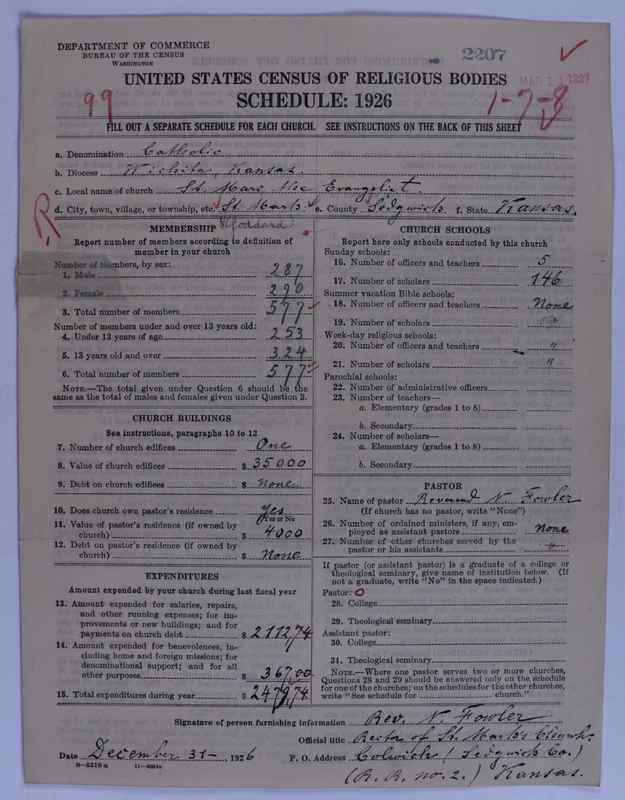 DEPARTMENT OF COMMERCE
BUREAU OF THE CENSUS
WASHINGTON
2207
MAR 11 1927
UNITED STATES CENSUS OF RELIGIOUS BODIES
SCHEDULE: 1926
99
1-7-8
FILL OUT A SEPARATE SCHEDULE FOR EACH CHURCH. SEE INSTRUCTIONS ON THE BACK OF THIS SHEET
a. Denomination Catholic
b. Diocese Wichita, Kansas.
c. Local name of church St. Marc, the Evangelist.
d. City, town, village, or township, etc. St. Mark e. County Sedgwick f. State Kansas.
(Goddard)
R
MEMBERSHIP
Report number of members according to definition of
member in your church
Number of members, by sex:
1. Male 287
2. Female 290
3. Total number of members 577
Number of members under and over 13 years old:
4. Under 13 years of age 253
5. 13 years old and over 324
6. Total number of members 577
NOTE.—The total given under Question 6 should be the
same as the total of males and females given under Question 3.
CHURCH BUILDINGS
See instructions, paragraphs 10 to 12
7. Number of church edifices One
8. Value of church edifices $ 35000
9. Debt on church edifices $ None
10. Does church own pastor's residence Yes
(Yes or No
11. Value of pastor's residence (if owned by
church) $ 4000
12. Debt on pastor's residence (if owned by
church) $ None
EXPENDITURES
Amount expended by your church during last fiscal year
13. Amount expended for salaries, repairs,
and other running expenses; for im-
provements or new buildings; and for
payments on church debt $ 2112 74
14. Amount expended for benevolences, in-
cluding home and foreign missions; for
denominational support; and for all
other purposes $ 367,00
15. Total expenditures during year $ 2479,74
CHURCH SCHOOLS
Report here only schools conducted by this church
Sunday schools:
16. Number of officers and teachers 5
17. Number of scholars 146
Summer vacation Bible schools:
18. Number of officers and teachers None
19. Number of scholars "
Week-day religious schools:
20. Number of officers and teachers "
21. Number of scholars "
Parochial schools:
22. Number of administrative officers
23. Number of teachers—
a. Elementary (grades 1 to 8)
b. Secondary
24. Number of scholars—
a. Elementary (grades 1 to 8)
b. Secondary
PASTOR
25. Name of pastor Reverend N. Fowler
(If church has no pastor, write "None")
26. Number of ordained ministers, if any, em-
ployed as assistant pastors None
27. Number of other churches served by the
pastor or his assistants "
If pastor (or assistant pastor) is a graduate of a college or
theological seminary, give name of institution below. (If
not a graduate, write "No" in the space indicated.)
Pastor: O
28. College
29. Theological seminary
Assistant pastor:
30. College
31. Theological seminary
NOTE.—Where one pastor serves two or more churches,
Questions 28 and 29 should be answered only on the schedule
for one of the churches; on the schedules for the other churches,
write "See schedule for church."
Signature of person furnishing information Rev. N. Fowler
Official title Rector of St. Mark's Church.
Date December 31- , 1926 P. O. Address Colwich (Sedgwick Co.)
8-5518 a
(R. R. no. 2.) Kansas.